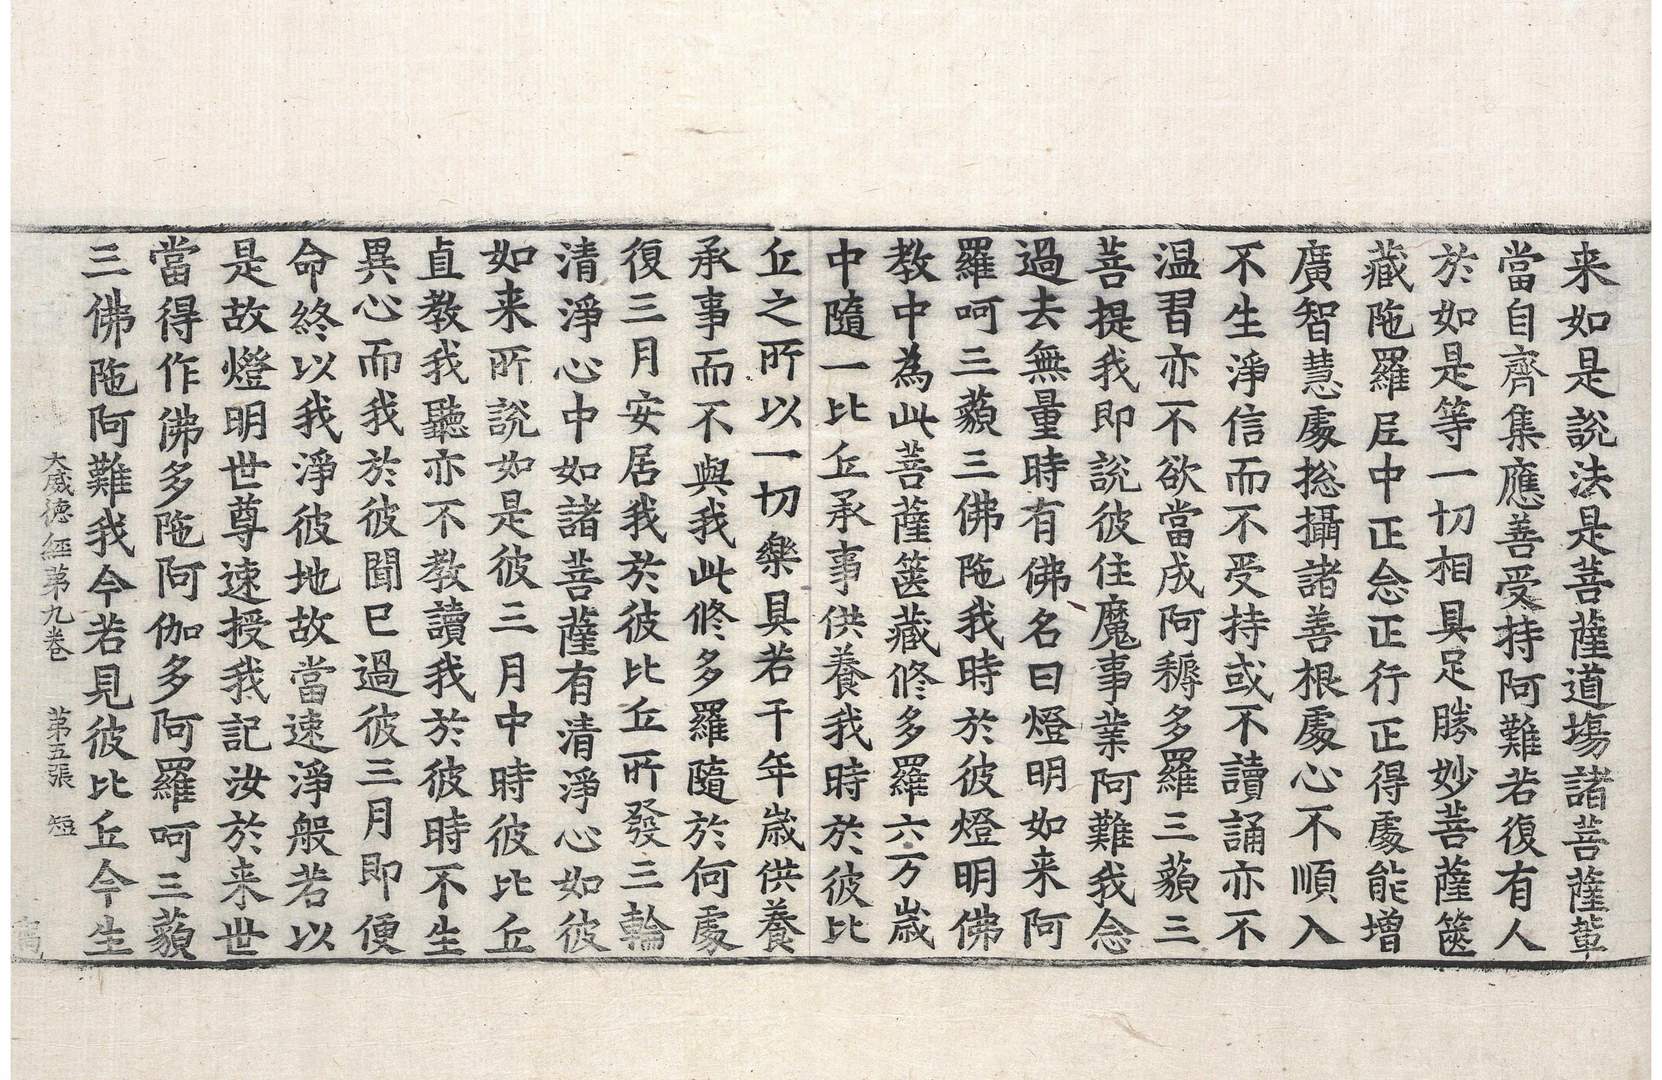 来如是說法是菩薩道場諸菩薩輩
當自齊集應善受持阿難若復有人
於如是等一切相具足勝妙菩薩篋
藏陁羅𡰱中正念正行正得處能增
廣智慧處㧾攝諸善根處心不順入
不生淨信而不受持或不讀誦亦不
温習亦不欲當成阿耨多羅三藐三
菩提我即說彼住魔事業阿難我念
過去無量時有佛名曰燈明如来阿
羅呵三藐三佛陁我時於彼燈明佛
教中為此菩薩篋藏修多羅六万歲
中隨一比丘承事供養我時於彼比
丘之所以一切樂具若干年歲供養
承事而不與我此修多羅隨於何處
復三月安居我於彼比丘所發三輪
清淨心中如諸菩薩有清淨心如彼
如来所說如是彼三月中時彼比丘
直教我聽亦不教讀我於彼時不生
異心而我於彼聞已過彼三月即便
命終以我淨彼地故當速淨般若以
是故燈明世尊速授我記汝於来世
當得作佛多陁阿伽多阿羅呵三藐
三佛陁阿難我今若見彼比丘今生
大威德經第九卷 第五張 短